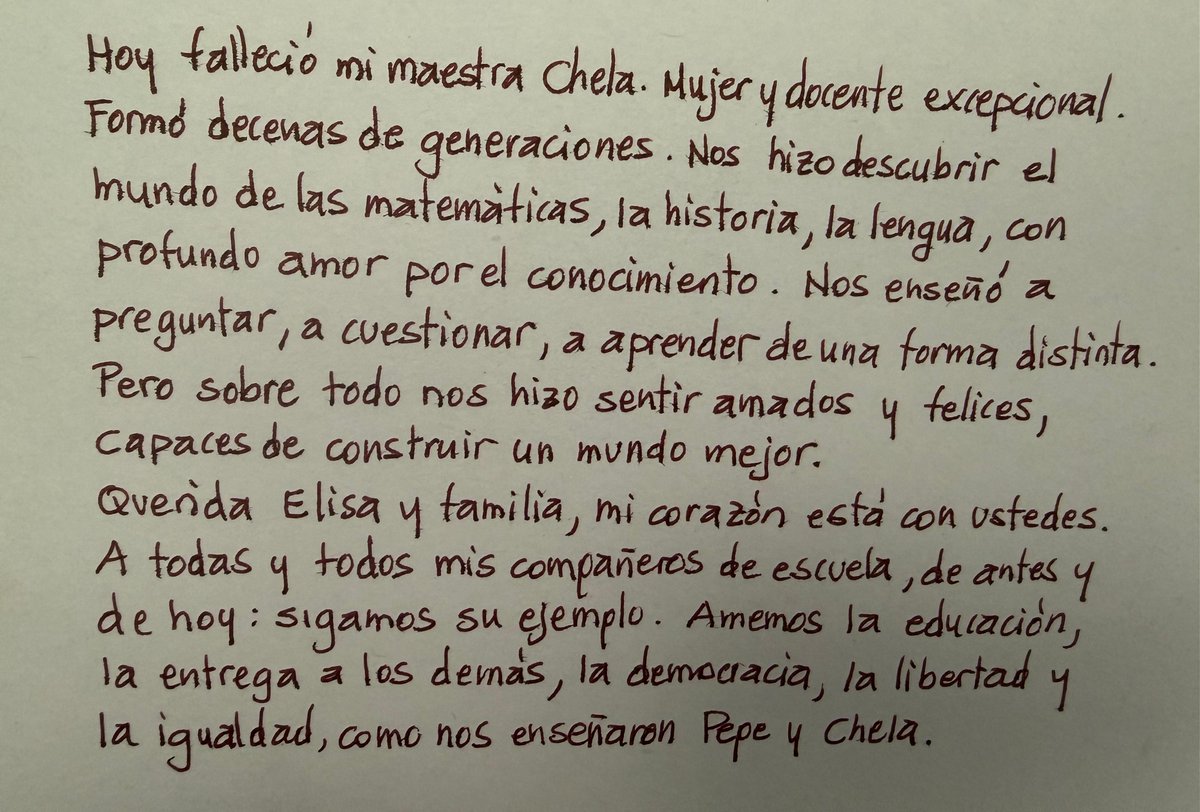 Hoy falleció mi maestra Chela. Mujer y docente excepcional.
Formó decenas de generaciones. Nos hizo descubrir el
mundo de las matemáticas, la historia, la lengua, con
profundo amor por el conocimiento. Nos enseñó a
preguntar, a cuestionar, a aprender de una forma distinta.
Pero sobre todo nos hizo sentir amados y felices,
capaces de construir un mundo mejor.
Querida Elisa y familia, mi corazón está con ustedes.
A todas y todos mis compañeros de escuela, de antes y
de hoy: sigamos su ejemplo. Amemos la educación,
la entrega a los demás, la democracia, la libertad y
la igualdad, como nos enseñaron Pepe y Chela.